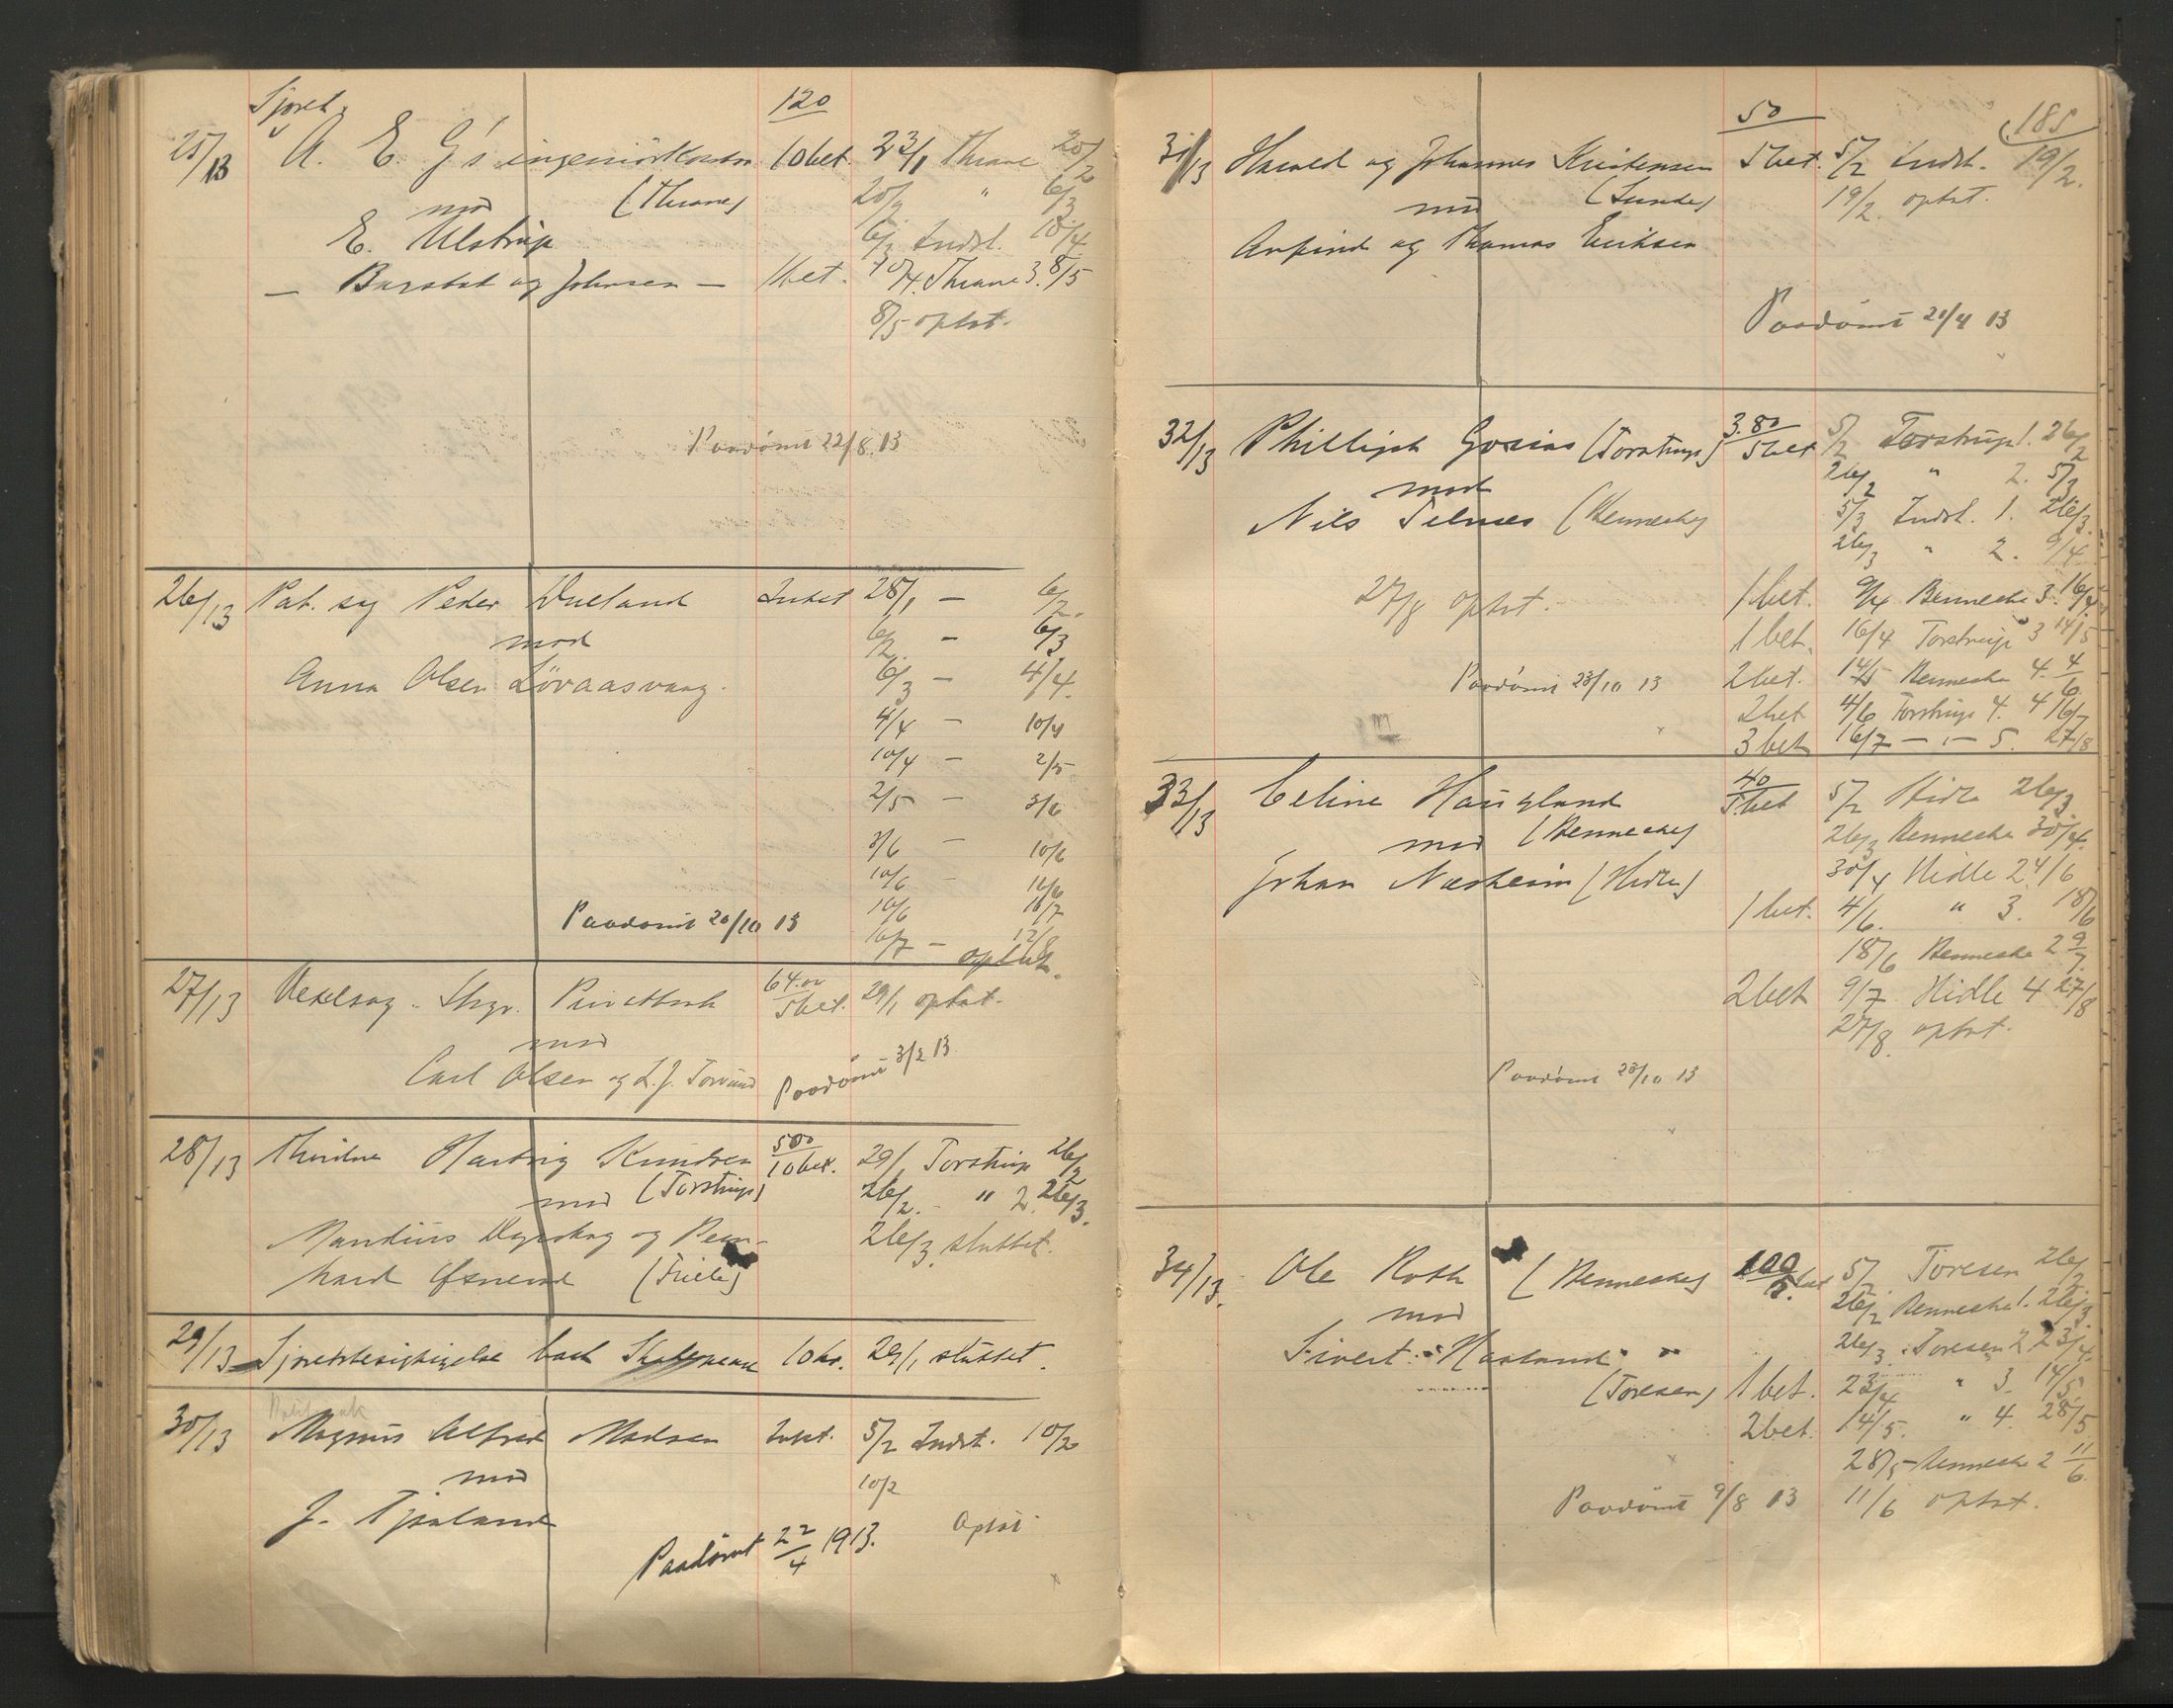 Sjøret
120
25/13 A. E. G's ingeniörkontor 10 bet. 23/1 Thrane 20/2
mod (Thrane) 20/2 " 6/3
E. Ulstrup 6/3 Indst. 10/4
— Barstad og Johnsen — 1 bet. 10/4 Thrane 3. 8/5
8/5 optat.
Paadömt 22/8 13
26/13 Pat. sag Peder Dueland Inket 28/1 — 6/2
mod 6/2 — 6/3
Anna Olsen Lövaasvaag. 6/3 — 4/4
4/4 — 10/4
10/4 — 2/5
2/5 — 3/6
3/6 — 10/6
10/6 — 16/6
10/6 16/7
Paadömt 20/10 13 16/7 — 12/8
optat.
27/13 Vexelsag. Stvgr. Privatbank 64.00 5 bet. 29/1 optat.
mod
Carl Olsen og L. J. Paadömt 3/2 13
28/13 Hartvig Knudsen 500 10 bet. 29/1 Torstrup 26/2
mod (Torstrup) 26/2 " 2. 26/3
og Bern-
hard (Friele) 26/3 sluttet.
29/13 10 kr. 29/1 sluttet.
30/13 Magnus Alfred Madsen 5/2 Indst. 10/2
mod 10/2
J. Tjaland optat.
Paadömt 22/4 1913.
50 185
31/13 Harald og Johannes Kristensen 5 bet. 5/2 Indst. 19/2.
mod (Lunde) 19/2 optat.
og Thomas Eriksen
Paadömt 21/4 13
32/13 Phillip (Torstrup) 3.80 5 bet 5/2 Torstrup 1. 26/2
mod 26/2 " 2. 5/3
Nils (Bennecke) 5/3 Indst. 1. 26/3
26/3 " 2. 9/4
27/8 optat. 1 bet. 9/4 Bennecke 3. 16/4
1 bet. 16/4 Torstrup 3 14/5
Paadömt 23/10 13 2 bet. 14/5 Bennecke 4. 4/6
2 bet 4/6 Torstrup 4. 16/7
3 bet 16/7 — " — 5. 27/8
33/13 Celine Haugland 40 5 bet 5/2 Hidle 26/3
mod (Bennecke) 26/3 Bennecke 30/4
Johan Næsheim (Hidle) 30/4 Hidle 2 4/6
1 bet. 4/6 " 3. 18/6
18/6 Bennecke 2 9/7
2 bet 9/7 Hidle 4 27/8
27/8 optat.
Paadömt 23/10 13
34/13. Ole Roth (Bennecke) 100 5 bet 5/2 Toresen 26/2
mod 26/2 Bennecke 1. 26/3
Sivert Haaland 26/3 Toresen 2 23/4
(Toresen) 1 bet. 23/4 " 3 14/5
2 bet. 14/5. " 4. 28/5
28/5 Bennecke 2 11/6
Paadömt 9/8 13 11/6 optat.